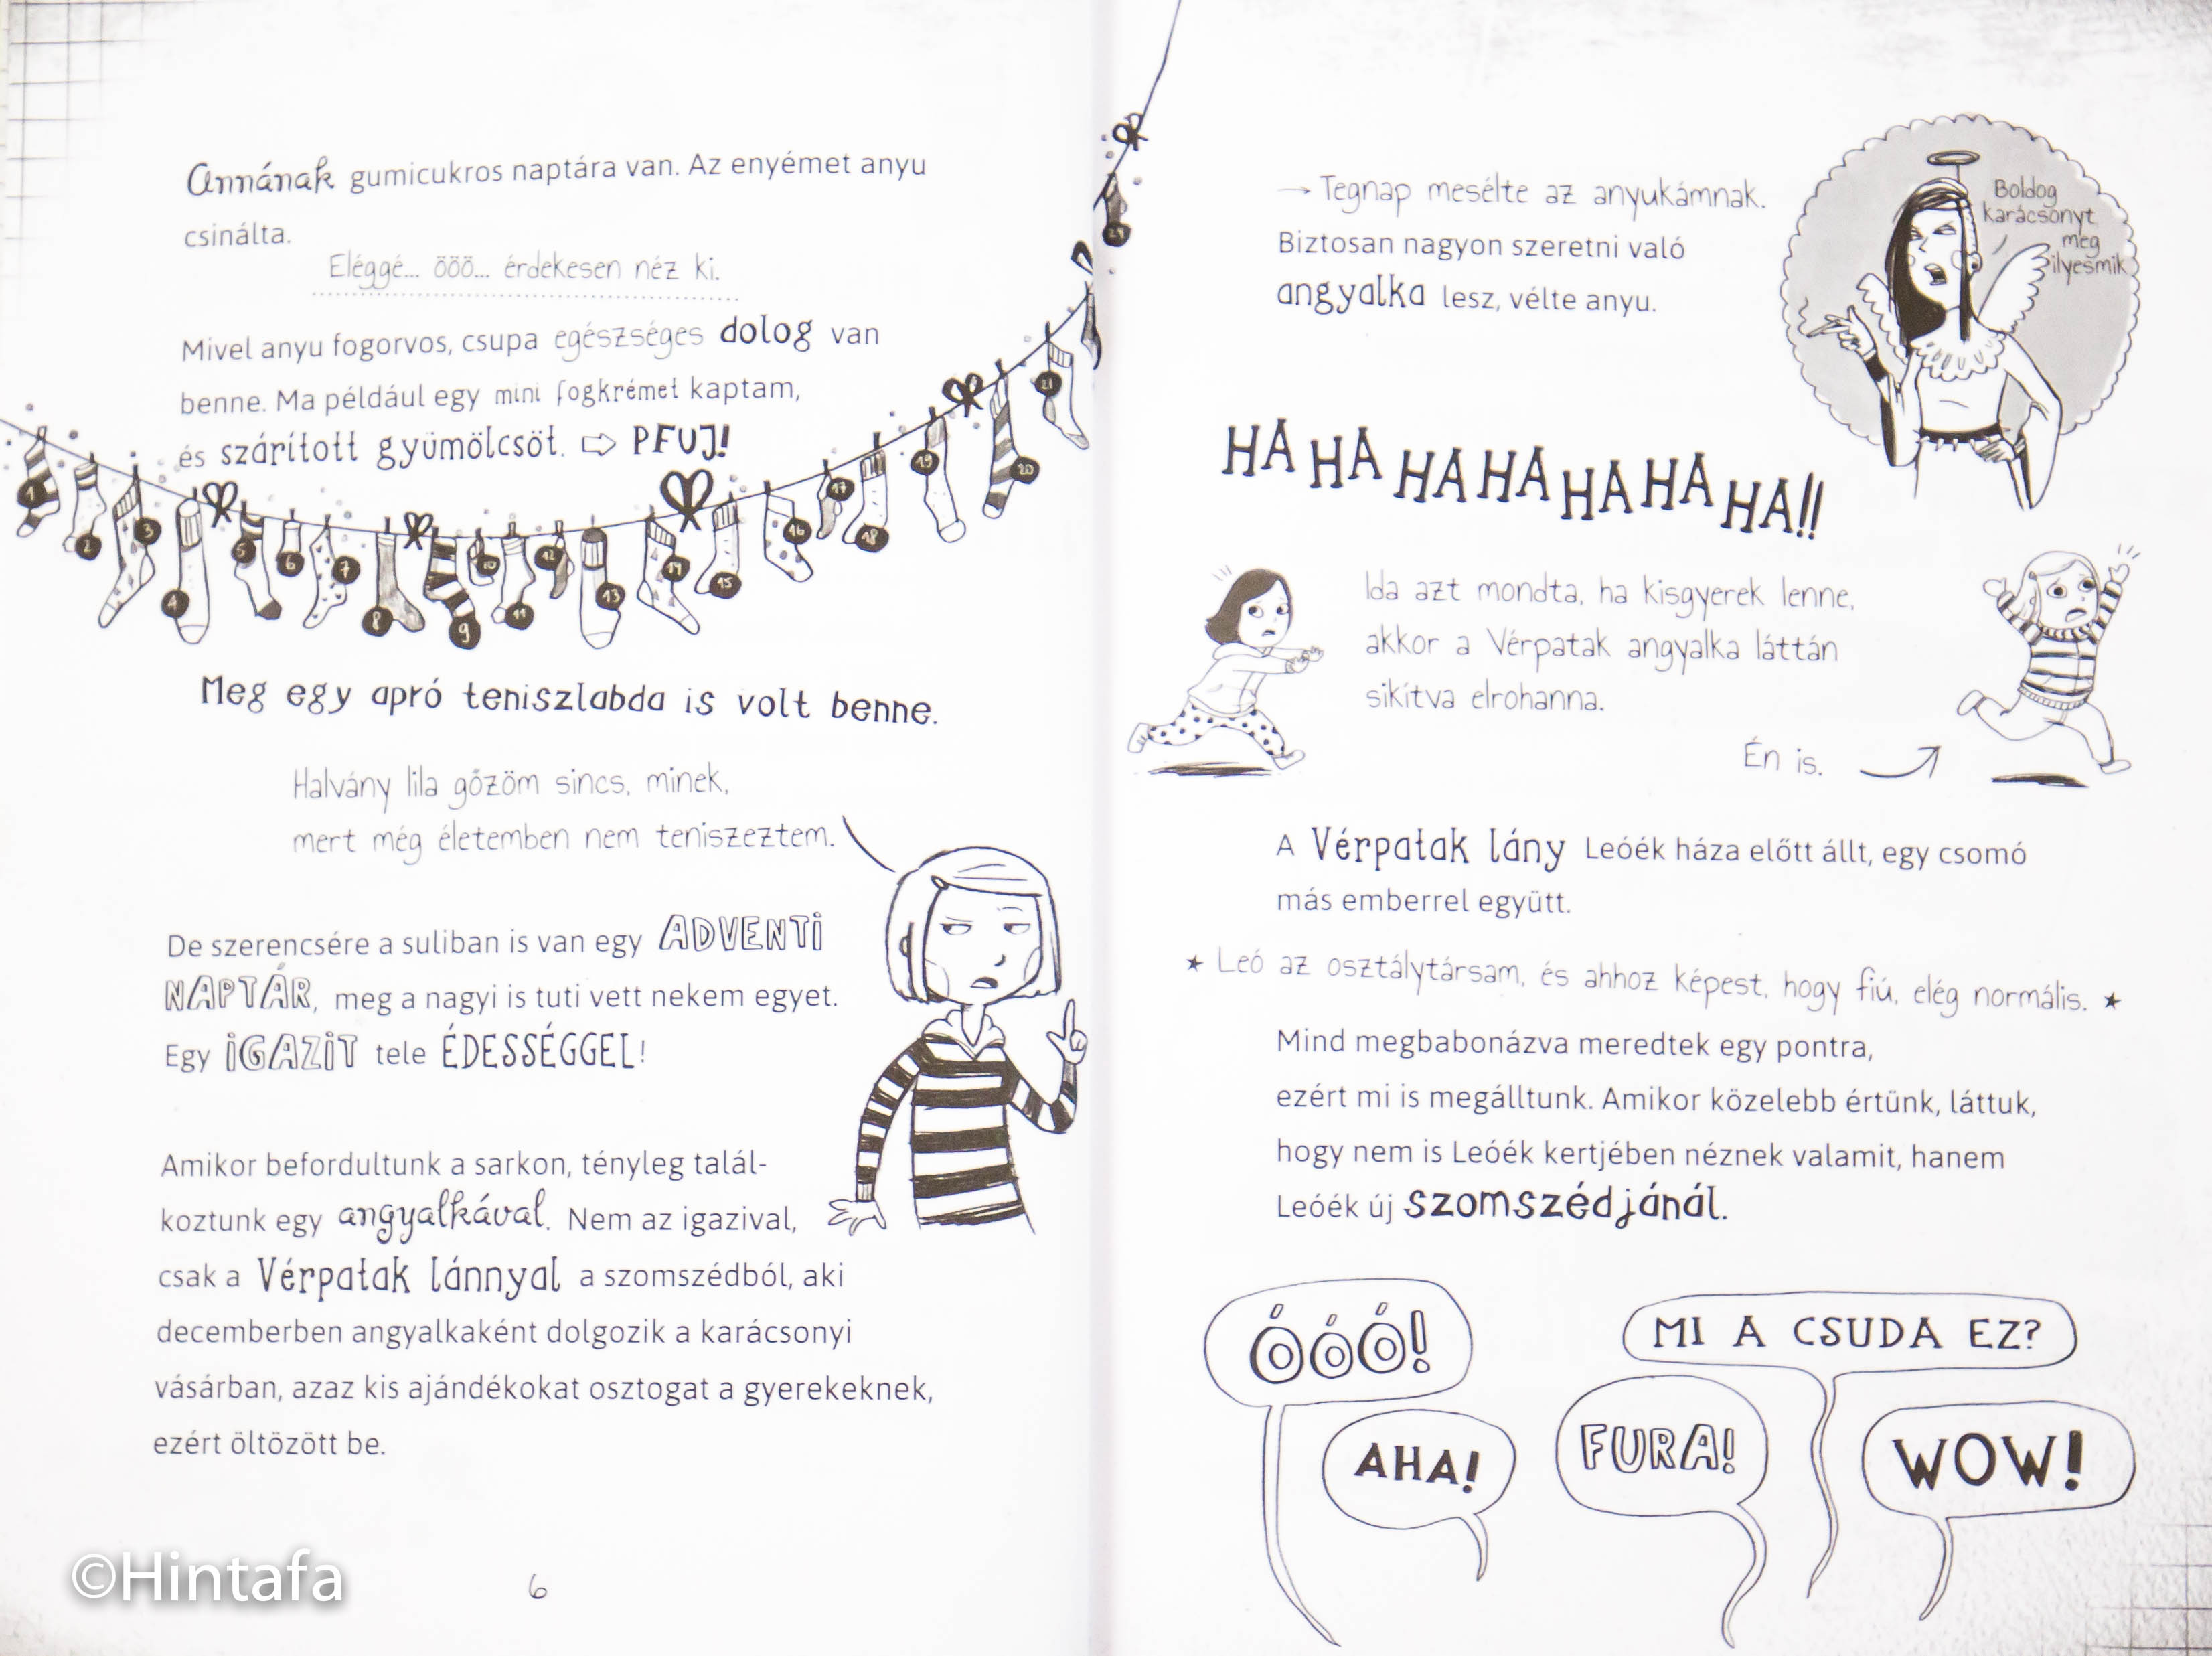 Annának gumicukros naptára van. Az enyémet anyu
csinálta.
Eléggé... ööö... érdekesen néz ki.
Mivel anyu fogorvos, csupa egészséges dolog van
benne. Ma például egy mini fogkrémet kaptam,
és szárított gyümölcsöt. ⇨ PFUJ!
1
2
3
4
5
6
7
8
9
10
11
12
13
14
15
16
17
18
19
20
21
24
Meg egy apró teniszlabda is volt benne.
Halvány lila gőzöm sincs, minek,
mert még életemben nem teniszeztem.
De szerencsére a suliban is van egy ADVENTI
NAPTÁR, meg a nagyi is tuti vett nekem egyet.
Egy IGAZIT tele ÉDESSÉGGEL!
Amikor befordultunk a sarkon, tényleg talál-
koztunk egy angyalkával. Nem az igazival,
csak a Vérpatak lánnyal a szomszédból, aki
decemberben angyalkaként dolgozik a karácsonyi
vásárban, azaz kis ajándékokat osztogat a gyerekeknek,
ezért öltözött be.
©Hintafa
6
→ Tegnap mesélte az anyukámnak.
Biztosan nagyon szeretni való
angyalka lesz, vélte anyu.
Boldog
karácsonyt
meg
ilyesmik
HA HA HA HA HA HA HA!!
Ida azt mondta, ha kisgyerek lenne,
akkor a Vérpatak angyalka láttán
sikítva elrohanna.
Én is.
A Vérpatak lány Leóék háza előtt állt, egy csomó
más emberrel együtt.
★ Leó az osztálytársam, és ahhoz képest, hogy fiú, elég normális. ★
Mind megbabonázva meredtek egy pontra,
ezért mi is megálltunk. Amikor közelebb értünk, láttuk,
hogy nem is Leóék kertjében néznek valamit, hanem
Leóék új szomszédjánál.
ÓÓÓ!
MI A CSUDA EZ?
AHA!
FURA!
WOW!